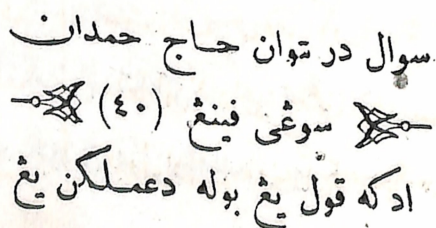 سوال در توان حاج حمدان
سوڠى فينڠ (٤٠)
اد كه قول يڠ بوله دعملكن يڠ